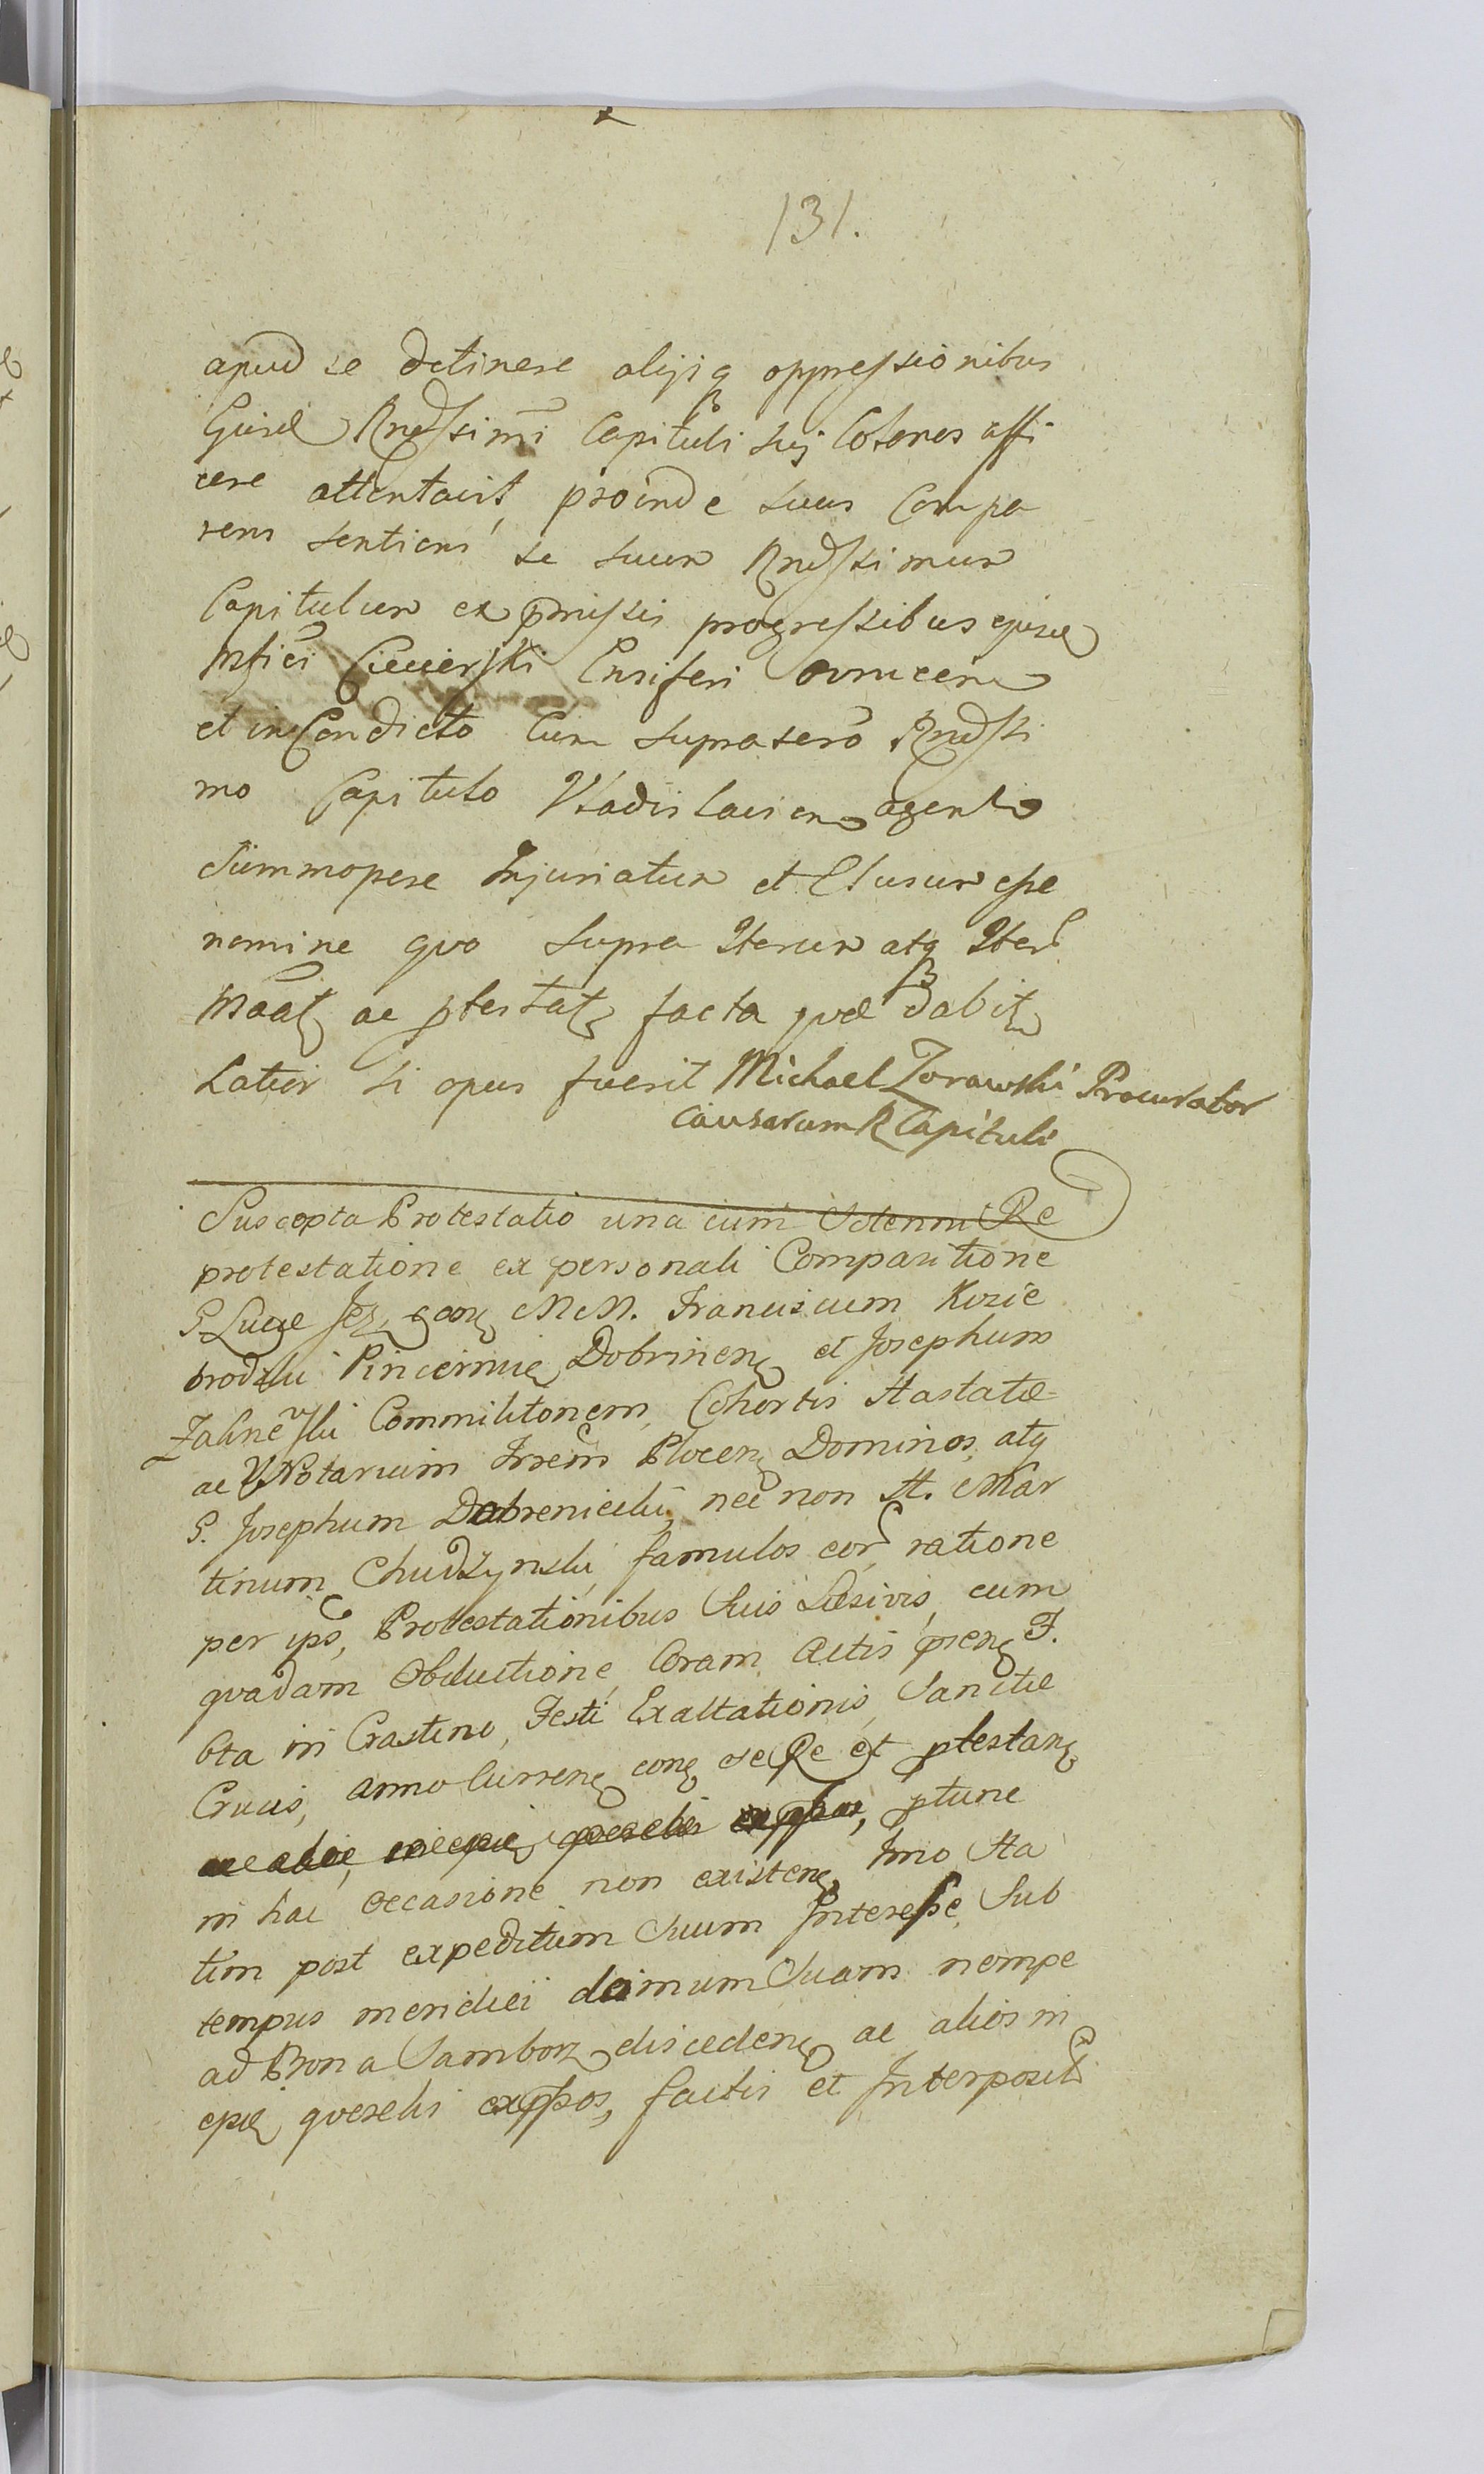 131.
apud se detinere alijsq oppressionibus
Ejusd Rndssimi Capituli sui Colonos affi
cere attentavit, proinde suus Compa
rens sentiens se suum Rndssimum
Capitulum ex pmissis progressibus ejusd
Mfici Ensiferi Ovrucen
et in Condicto Cum supraserō Rndssi
mo Capitulo Vladislavien agent
Summopere Injuriatum et Elusum esse
nomine quo supra Iterum atq Iter
Maāt ac ptestat facta quæ dabit
Latior si opus fuerit Michael Zorawski Procurator
Causarum R Capituli
Suscepta Protestatio una cum Solenni Re
protestatione ex personali Comparitione
G. Lucæ MM. Franciscum Kozie
brodzki Pincernæ Dobrinen et Josephum
Zaliński Commilitonem, Cohortis Hastatæ
ac VNotarium Trrem Plocen Dominos, atq
G. Josephum nec non H. Mar
tinum Chudzynski, famulos eor ratione
per ips, Protestationibus Suis Læsivis, cum
quadam Obductione, Coram Actis psen F.
bta in Crastino, Festi Exaltationis, Sanctæ
Crucis, anno Curren con se Re et ptestan
ptunc
in hac occasione non existen, Imo Sta
tim post expeditum Suum Interesse, Sub
tempus meridiei domum Suam nempe
ad Bona Samborz disceden ac alios in
querelis exppos, factis et Interposit